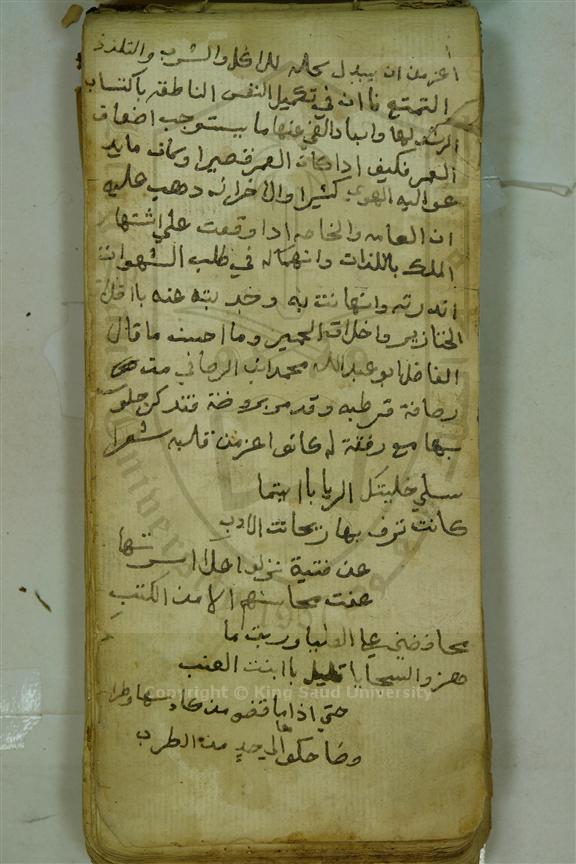 اعز من ان يبدل بحاله للاكل والشرب والتلذذ
التمتع فان في تكميل النفس الناطقة باكتساب
الرشد لها وابعاد الغي عنها ما يستوجب اضعاف
العمر فكيف ادا كان العمر قصيرا وكان ما يد
عو اليه الهوى كثيرا والاخر انه دهب عليه
ان العامه والخاصه ادا وقعت علي اشتها
الملك باللذات وانهماكه في طلب الشهوات
ازدرته واستهانت به وحدثته عنه باخلاق
الخنازير واخلاق الحمير وما احسن ما قال
الفاضل ابو عبد الله محمد ابن الرصافي من
رصافة قرطبه وقد مر بروضة فتدكر جلو
بها مع رفقة له كانوا اعز من قلبه شعرا
سلي خليتك الريا بايتما
كانت ترف بها ريحانت الادب
عن فتية نزلوا اعلا اسرتها
عفت محاسنهم الا من الكتب
محافضين علي العليا وربت ما
هزو السجايا قليل بابنت العنب
حتي اذا ما قضو من كاسها وطرا
وضاحكوها الي حد من الطرب
Copyright © King Saud University